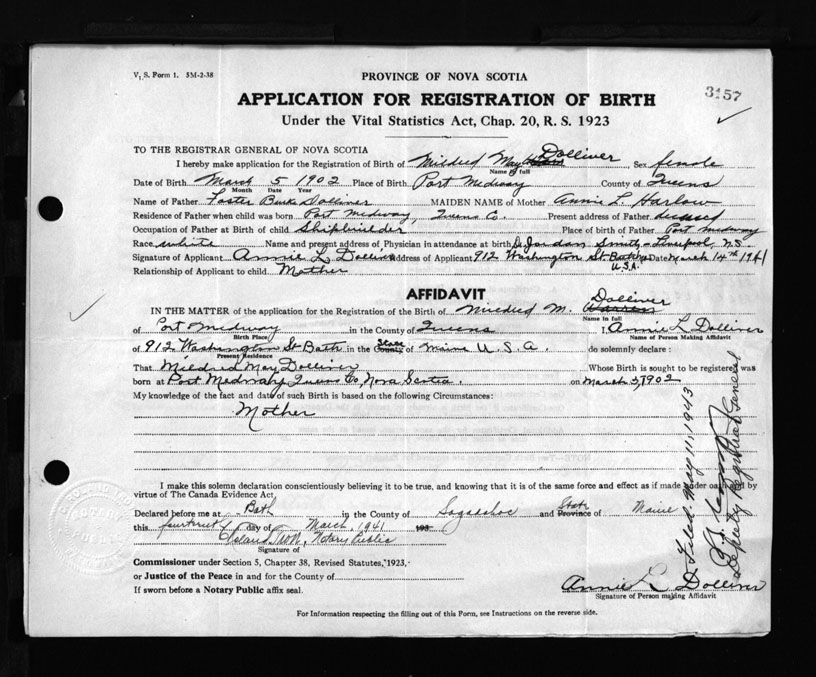 V. S. Form 1. 3M-2-38
PROVINCE OF NOVA SCOTIA
3157
APPLICATION FOR REGISTRATION OF BIRTH
Under the Vital Statistics Act, Chap. 20, R. S. 1923
TO THE REGISTRAR GENERAL OF NOVA SCOTIA
I hereby make application for the Registration of Birth of Mildred May Dolliver Sex female
Name in full
Date of Birth March 5 1902 Place of Birth Port Medway County of Queens
Month Date Year
Name of Father Foster Burke Dolliver MAIDEN NAME of Mother Annie L. Harlow
Residence of Father when child was born Port Medway, Queens Co. Present address of Father deceased
Occupation of Father at Birth of child Shipbuilder Place of birth of Father Port Medway
Race white Name and present address of Physician in attendance at birth Dr Jordan Smith - Liverpool, N.S.
Signature of Applicant Annie L Dolliver Address of Applicant 912 Washington St. Bath Me Date March 14th 1941
U.S.A.
Relationship of Applicant to child Mother
AFFIDAVIT
IN THE MATTER of the application for the Registration of the Birth of Mildred M. Dolliver
Name in full
of Port Medway in the County of Queens I, Annie L Dolliver
Birth Place Name of Person Making Affidavit
of 912 Washington St Bath in the State County of Maine U.S.A. do solemnly declare:
Present Residence
That Mildred May Dolliver Whose Birth is sought to be registered was
born at Port Medway Queens Co, Nova Scotia. on March 5, 1902
My knowledge of the fact and date of such Birth is based on the following Circumstances:
Mother
I make this solemn declaration conscientiously believing it to be true, and knowing that it is of the same force and effect as if made under oath and by
virtue of The Canada Evidence Act.
Declared before me at Bath in the County of Sagadahoc and State Province of Maine
this fourteenth day of March, 1941 193
Notary Public
Signature of
Commissioner under Section 5, Chapter 38, Revised Statutes, 1923,
or Justice of the Peace in and for the County of
If sworn before a Notary Public affix seal.
Annie L Dolliver
Signature of Person making Affidavit
For Information respecting the filling out of this Form, see Instructions on the reverse side.
Filed May 11, 1943
Deputy Registrar General